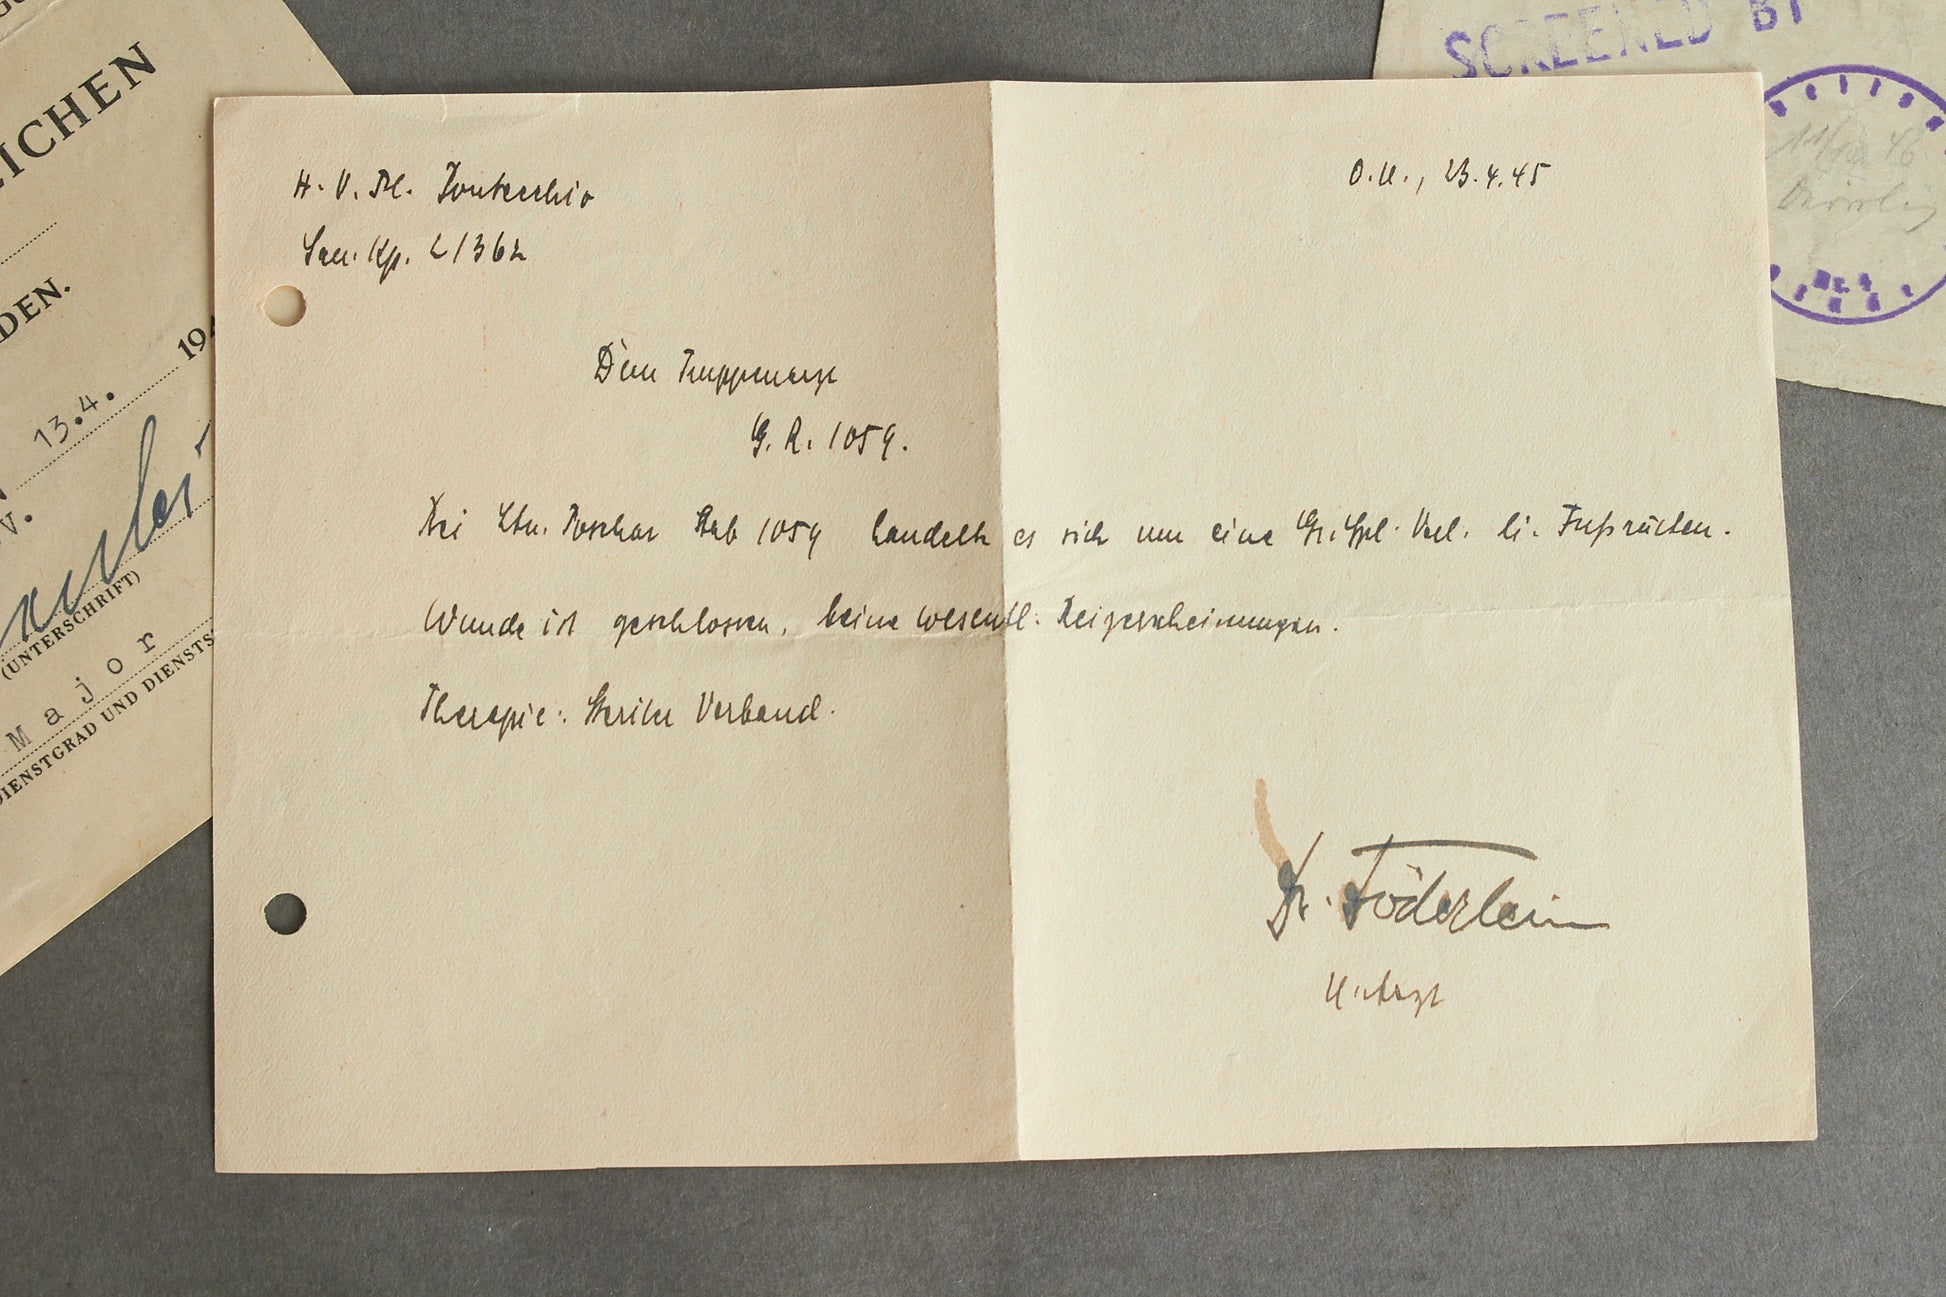 EICHEN
DEN.
13.4. 194
V.
(UNTERSCHRIFT)
Major
DIENSTGRAD UND DIENSTS
SCREENED BY
Nr. 4
H. V. Pl. Pontecchio
O.U., 23.4.45
San. Kp. 2/362
Dem Truppenarzt
G. R. 1059.
Bei Ltn. Stab 1059 handelt es sich um eine Gr. Spl. Verl. li. Fußrücken.
Wunde ist geschlossen, keine wesentl. Reizerscheinungen.
Therapie: Steriler Verband.
Dr. Föderlein
U. Arzt